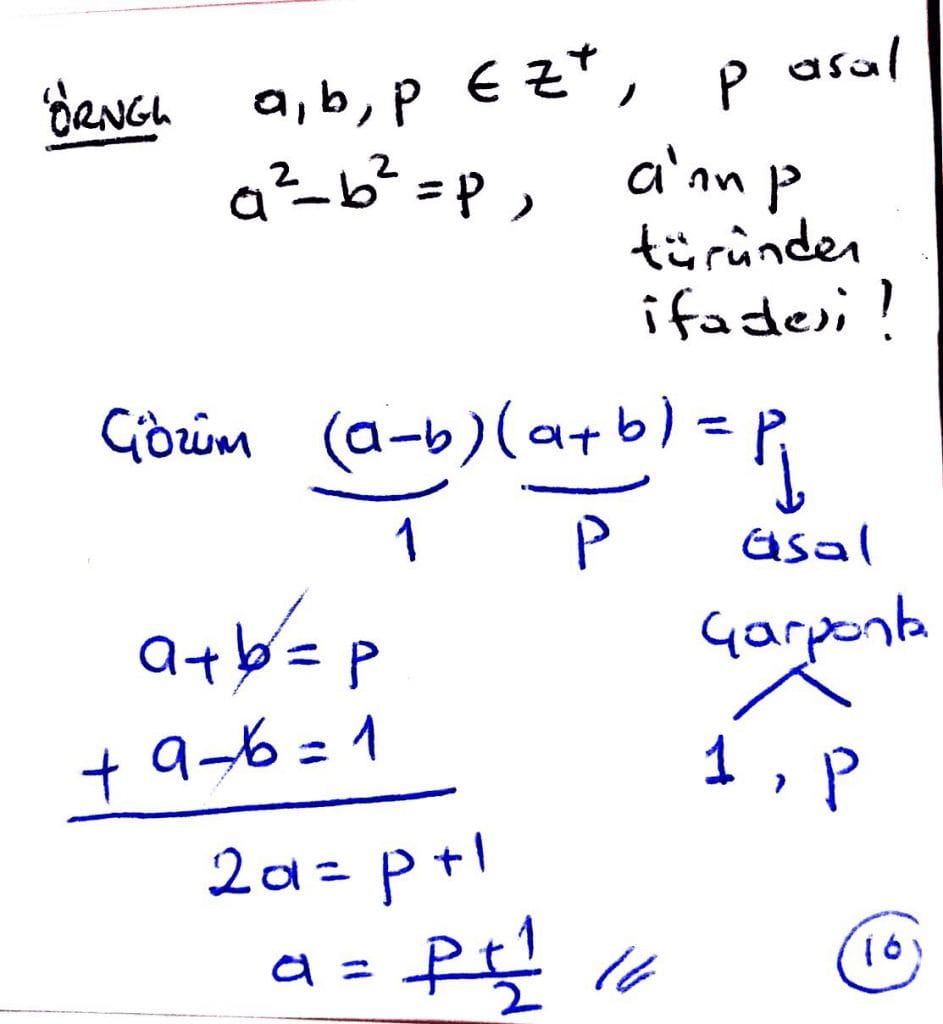 ÖRNEK a, b, p ∈ Z⁺, p asal
a² - b² = p, a'nın p
türünden
ifadesi!
Çözüm (a-b)(a+b) = p
1 p asal
a+b = p çarpanlar
+ a-b = 1 1, p
2a = p+1
a = p+1/2 //
10